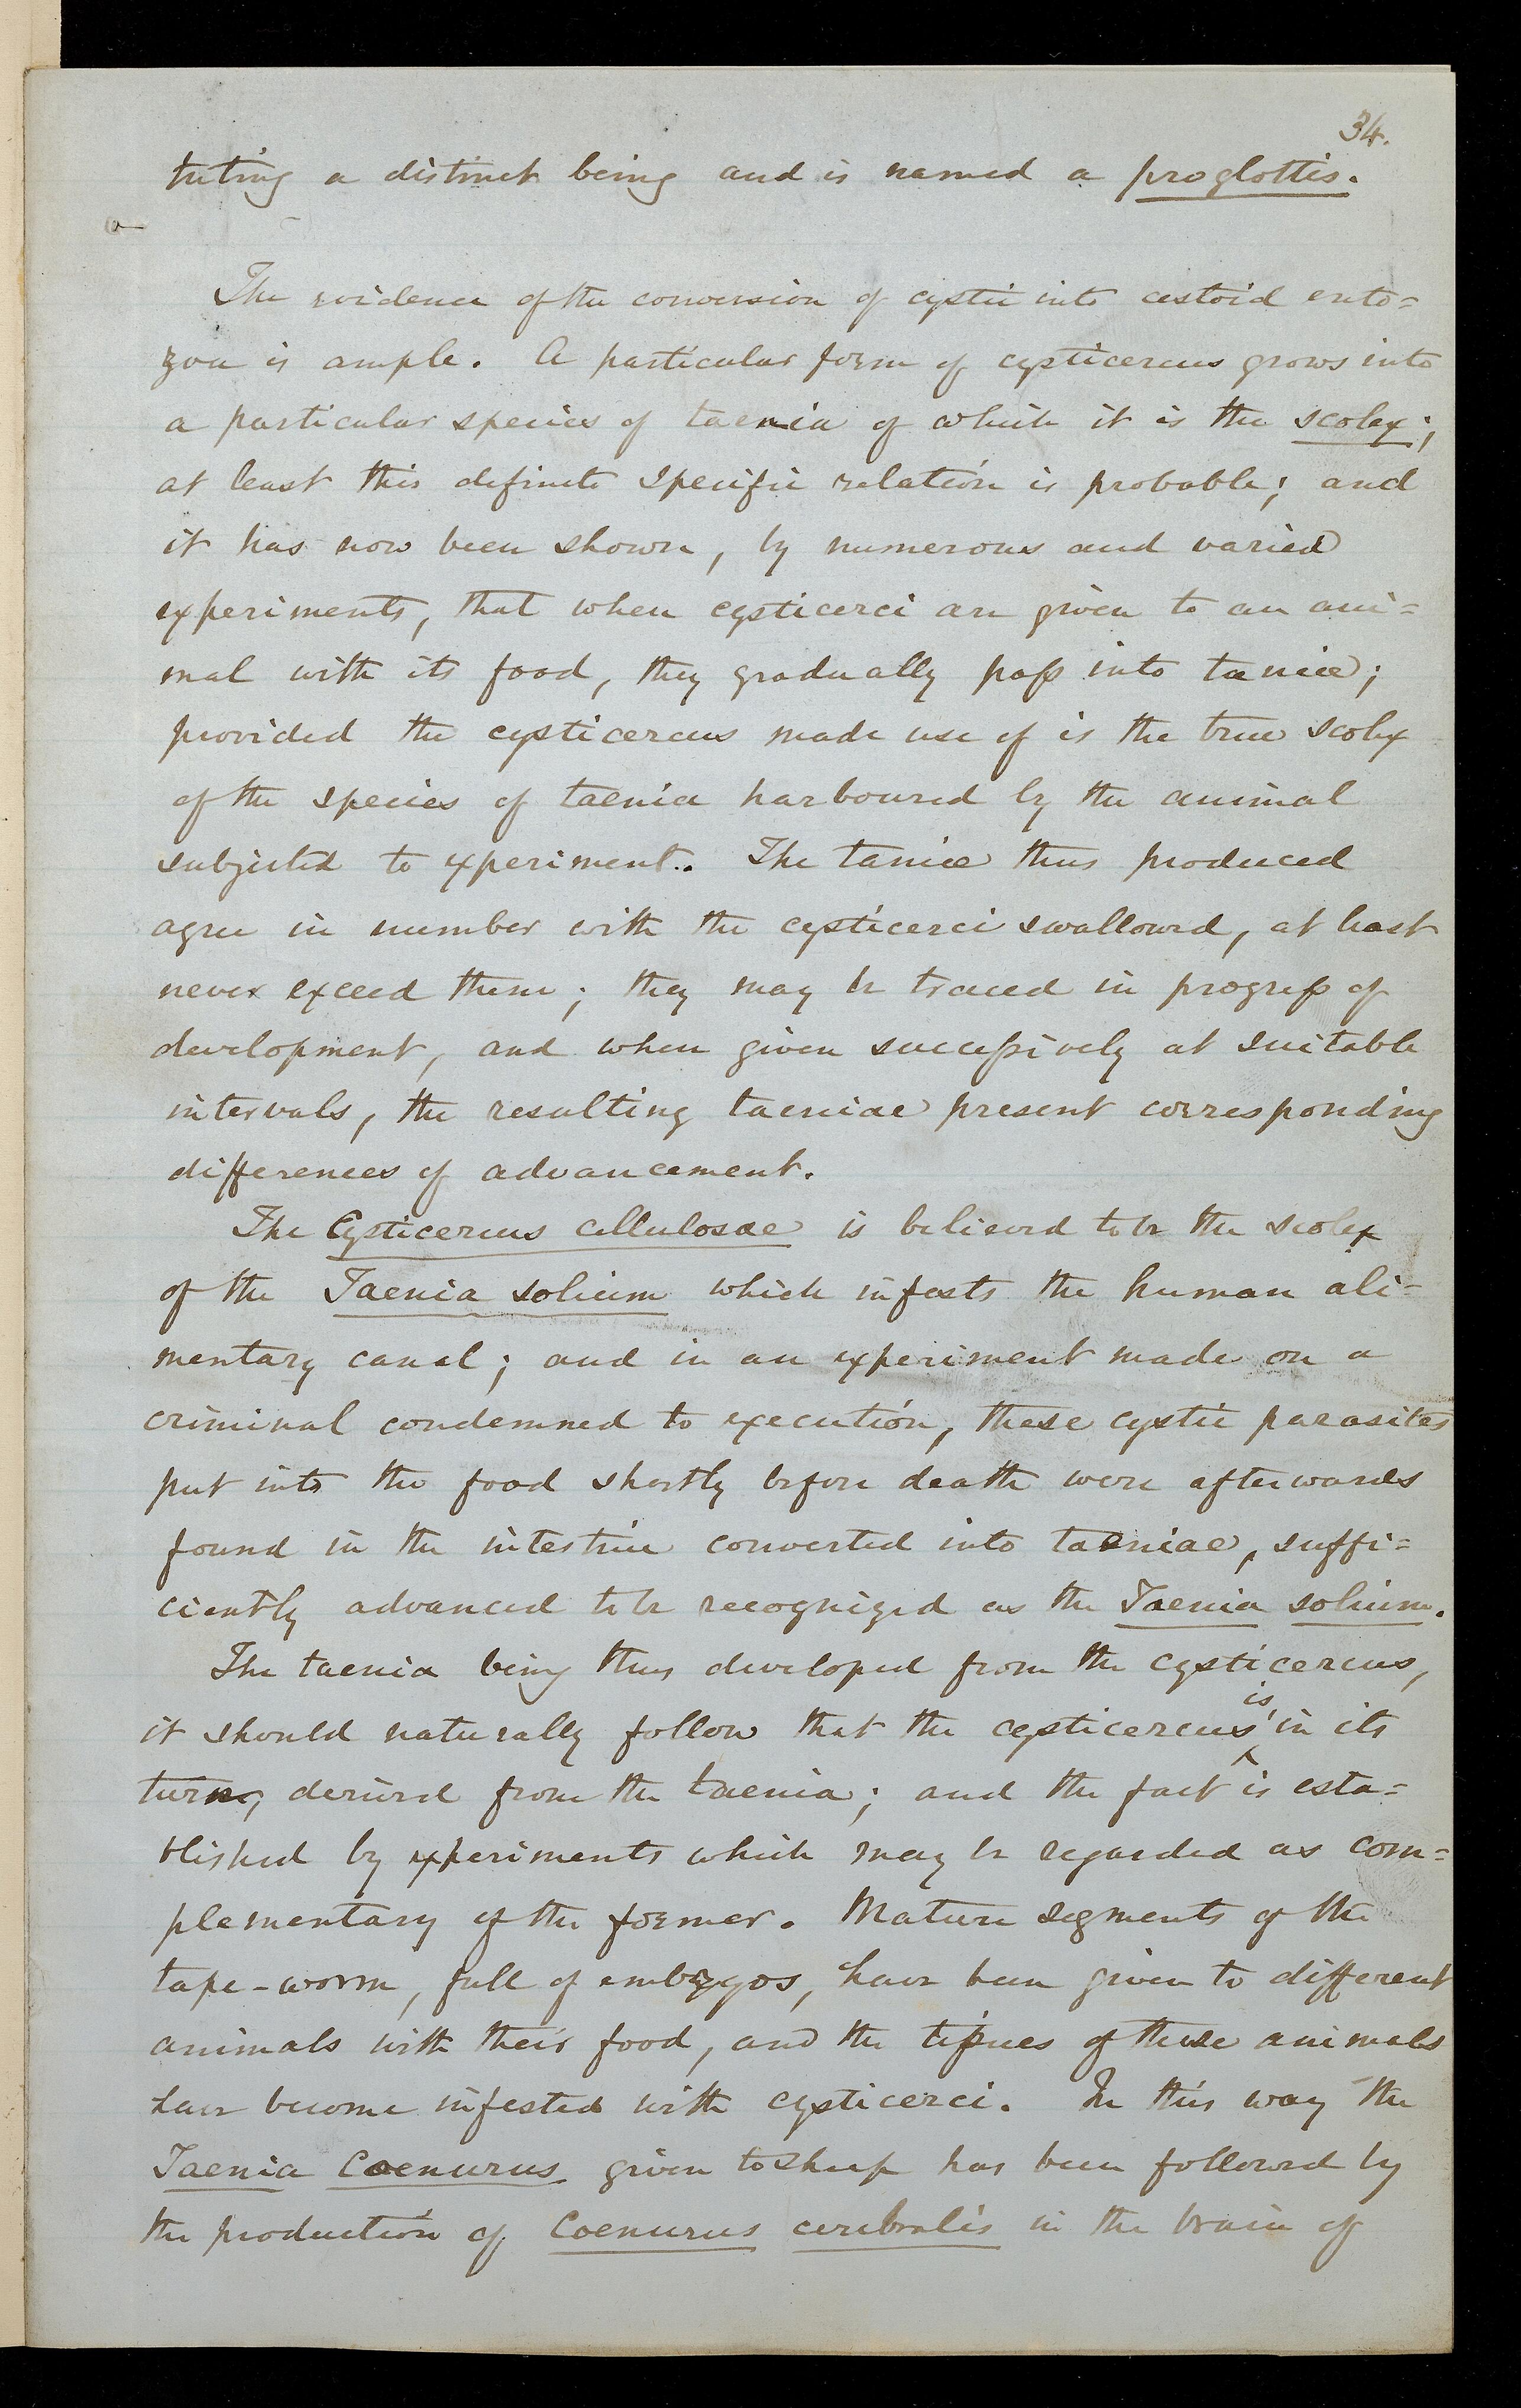 34.
tuting a distinct being and is named a proglottis.
The evidence of the conversion of cystic into cestoid ento=
zoa is ample. A particular form of cysticercus grows into
a particular species of taenia of which it is the scolex;
at least this definite specific relation is probable; and
it has now been shown, by numerous and varied
experiments, that when cysticerci are given to an ani=
mal with its food, they gradually pass into taniæ;
provided the cysticercus made use of is the true scolex
of the species of taenia harboured by the animal
subjected to experiment. The taniæ thus produced
agree in number with the cysticerci swallowed, at least
never exceed them; they may be traced in progress of
development, and when given successively at suitable
intervals, the resulting taeniae present corresponding
differences of advancement.
The Cysticercus cellulosae is believed to be the scolex
of the Taenia solium which infests the human ali-
mentary canal; and in an experiment made on a
criminal condemned to execution, these cystic parasites
put into the food shortly before death were afterwards
found in the intestine converted into taeniae, suffi=
ciently advanced to be recognized as the Taenia solium.
The taenia being thus developed from the cysticercus,
it should naturally follow that the cysticercus is in its
turn, derived from the taenia; and the fact is esta=
blished by experiments which may be regarded as com=
plementary of the former. Mature segments of the
tape-worm, full of embryos, have been given to different
animals with their food, and the tissues of these animals
have become infested with cysticerci. In this way the
Taenia Coenurus given to sheep has been followed by
the production of Coenurus cerebralis in the brain of